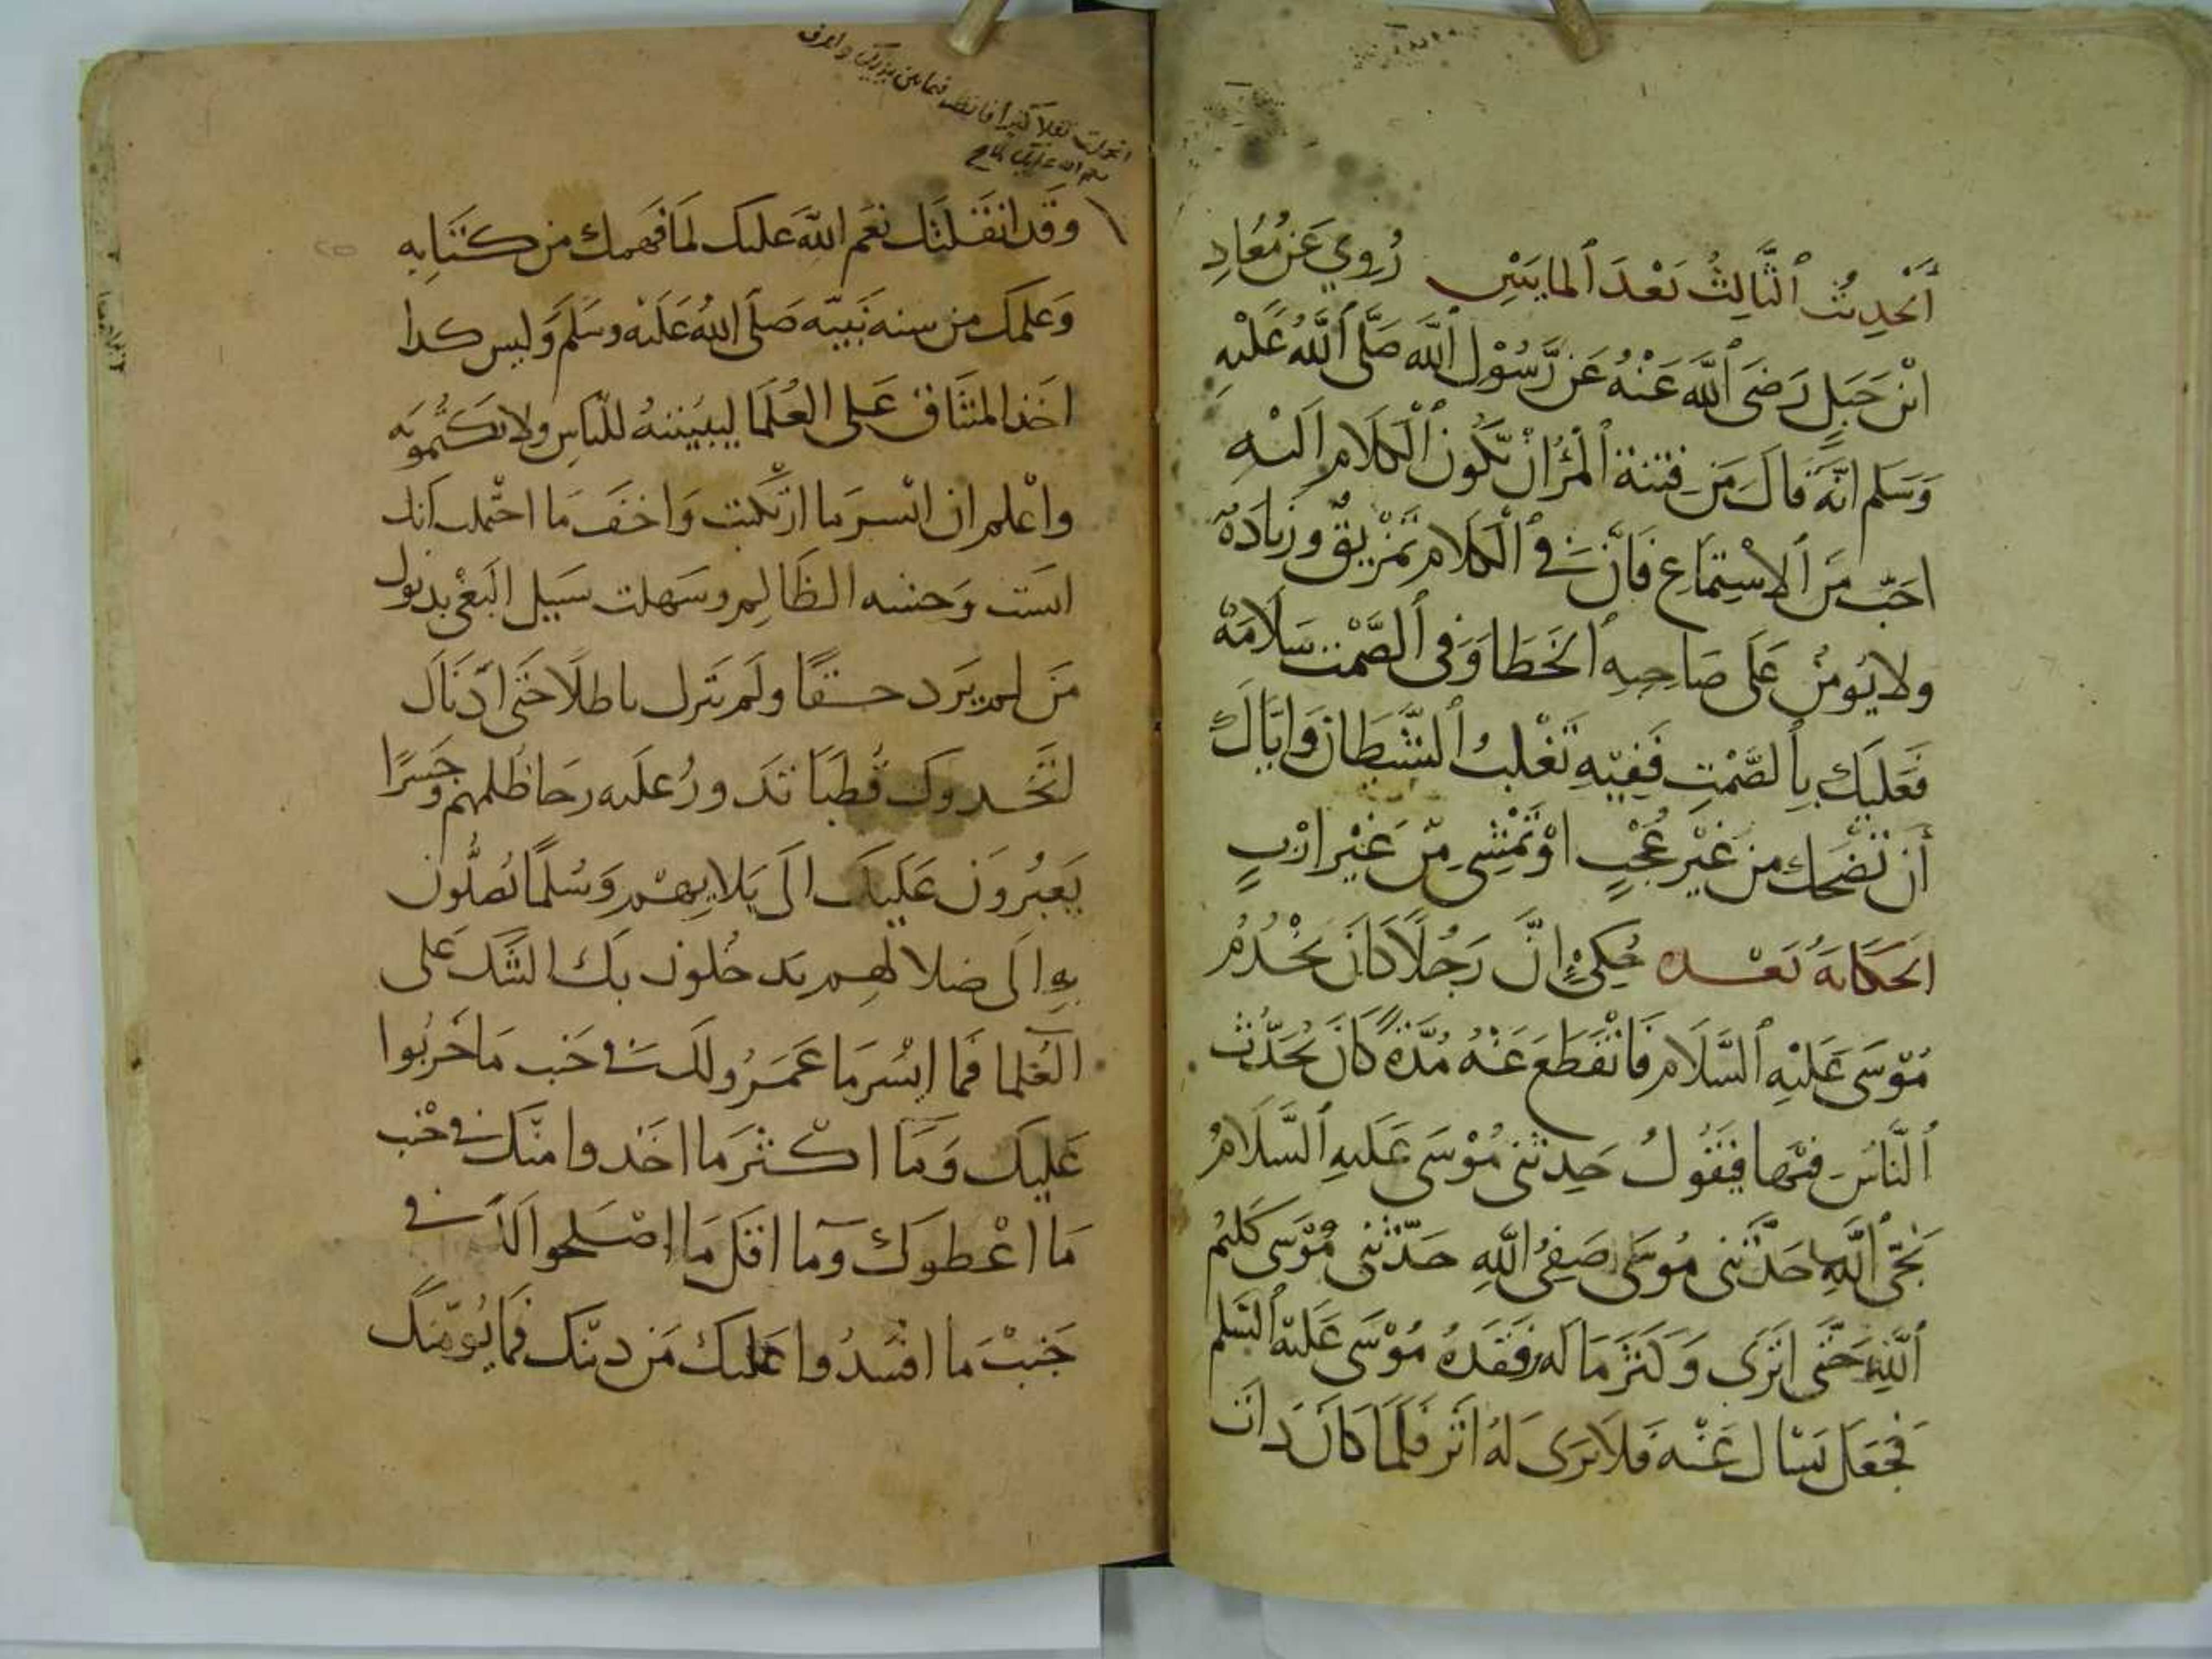 الحديث الثالث بعد المايتين رُوي عن مُعاد
ابن جبل رضى الله عنه عن رسول الله صلى الله عليه
وسلم انه قال من فتنة المرء ان تكون الكلام اليه
احب من الاستماع فان في الكلام تمزيق وزيادة
ولا يومن على صاحبه الخطا وفي الصمت سلامة
فعليك بالصمت ففيه تغلب الشيطان واياك
أن تضحك من غير عجب او تمشي من غير ارب
الحكاية بعده حكي ان رجلا كان يخدم
موسى عليه السلام فانقطع عنه مدة كان يحدث
الناس فيها فيقول حدثني موسى عليه السلام
نجي الله حدثني موسى صفي الله حدثني موسى كليم
الله حتى اثرى وكثر ماله وفقده موسى عليه السلم
فجعل يسال عنه فلا يرى له اثر فلما كان دات
وقد اثقلتك نعم الله عليك لما فهمك من كتابه
وعلمك من سنه نبيه صلى الله عليه وسلم وليس كدا
اخذ الميثاق على العلما ليبيننه للناس ولا تكتمونه
واعلم ان ايسر ما ارتكبت واخف ما احتملت انك
انست وحشه الظالم وسهلت سبيل البغي بدنوك
من لم يرد حقا ولم يترك باطلا حتى ادناك
اتخدوك قطبا تدور عليه رحا ظلمهم وجسرا
يعبرون عليك الى بلايهم وسلما يصلون
به الى ضلالهم يدخلون بك الشك على
العلما فما ايسر ما عمروا لك في جنب ما خربوا
عليك وما اكثر ما اخدوا منك في جنب
ما اعطوك وما اقل ما اصلحوا لك في
جنب ما افسدوا عليك من دينك فما يومنك